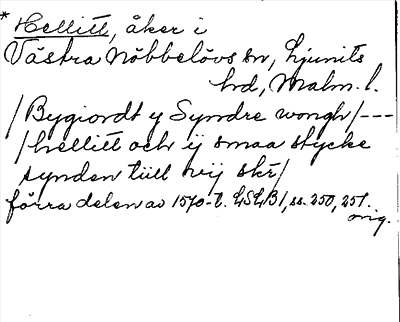 * Hellitt, åker i
Västra Nöbbelövs sn, Ljunits
hd, Malm. l.
/Bygiordt y Syndre wongh/---
/hellitt och ij smaa stycke
synden till vij skr/
förra delen av 1570-t. LSLB1, ss. 250, 251.
orig.